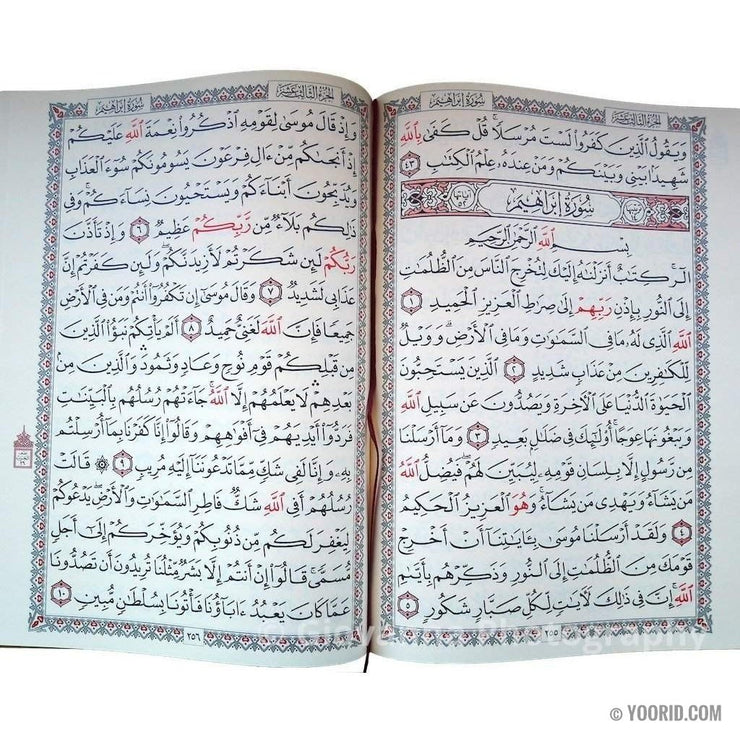 الجزء الثالث عشر
سورة إبراهيم
وَيَقُولُ الَّذِينَ كَفَرُوا لَسْتَ مُرْسَلًا ۚ قُلْ كَفَىٰ بِاللَّهِ
شَهِيدًا بَيْنِي وَبَيْنَكُمْ وَمَنْ عِندَهُ عِلْمُ الْكِتَابِ ٤٣
سُورَةُ إِبْرَاهِيمَ
بِسْمِ اللَّهِ الرَّحْمَٰنِ الرَّحِيمِ
الٓر ۚ كِتَابٌ أَنزَلْنَاهُ إِلَيْكَ لِتُخْرِجَ النَّاسَ مِنَ الظُّلُمَاتِ
إِلَى النُّورِ بِإِذْنِ رَبِّهِمْ إِلَىٰ صِرَاطِ الْعَزِيزِ الْحَمِيدِ ١
اللَّهِ الَّذِي لَهُ مَا فِي السَّمَاوَاتِ وَمَا فِي الْأَرْضِ ۗ وَوَيْلٌ
لِّلْكَافِرِينَ مِنْ عَذَابٍ شَدِيدٍ ٢ الَّذِينَ يَسْتَحِبُّونَ
الْحَيَاةَ الدُّنْيَا عَلَى الْآخِرَةِ وَيَصُدُّونَ عَن سَبِيلِ اللَّهِ
وَيَبْغُونَهَا عِوَجًا ۚ أُولَٰئِكَ فِي ضَلَالٍ بَعِيدٍ ٣ وَمَا أَرْسَلْنَا
مِن رَّسُولٍ إِلَّا بِلِسَانِ قَوْمِهِ لِيُبَيِّنَ لَهُمْ ۖ فَيُضِلُّ اللَّهُ
مَن يَشَاءُ وَيَهْدِي مَن يَشَاءُ ۚ وَهُوَ الْعَزِيزُ الْحَكِيمُ
٤ وَلَقَدْ أَرْسَلْنَا مُوسَىٰ بِآيَاتِنَا أَنْ أَخْرِجْ
قَوْمَكَ مِنَ الظُّلُمَاتِ إِلَى النُّورِ وَذَكِّرْهُم بِأَيَّامِ
اللَّهِ ۚ إِنَّ فِي ذَٰلِكَ لَآيَاتٍ لِّكُلِّ صَبَّارٍ شَكُورٍ ٥
٢٥٥
الجزء الثالث عشر
سورة إبراهيم
وَإِذْ قَالَ مُوسَىٰ لِقَوْمِهِ اذْكُرُوا نِعْمَةَ اللَّهِ عَلَيْكُمْ
إِذْ أَنجَاكُم مِّنْ آلِ فِرْعَوْنَ يَسُومُونَكُمْ سُوءَ الْعَذَابِ
وَيُذَبِّحُونَ أَبْنَاءَكُمْ وَيَسْتَحْيُونَ نِسَاءَكُمْ ۚ وَفِي
ذَٰلِكُم بَلَاءٌ مِّن رَّبِّكُمْ عَظِيمٌ ٦ وَإِذْ تَأَذَّنَ
رَبُّكُمْ لَئِن شَكَرْتُمْ لَأَزِيدَنَّكُمْ ۖ وَلَئِن كَفَرْتُمْ إِنَّ
عَذَابِي لَشَدِيدٌ ٧ وَقَالَ مُوسَىٰ إِن تَكْفُرُوا أَنتُمْ وَمَن فِي الْأَرْضِ
جَمِيعًا فَإِنَّ اللَّهَ لَغَنِيٌّ حَمِيدٌ ٨ أَلَمْ يَأْتِكُمْ نَبَأُ الَّذِينَ
مِن قَبْلِكُمْ قَوْمِ نُوحٍ وَعَادٍ وَثَمُودَ ۛ وَالَّذِينَ مِن
بَعْدِهِمْ ۛ لَا يَعْلَمُهُمْ إِلَّا اللَّهُ ۚ جَاءَتْهُمْ رُسُلُهُم بِالْبَيِّنَاتِ
فَرَدُّوا أَيْدِيَهُمْ فِي أَفْوَاهِهِمْ وَقَالُوا إِنَّا كَفَرْنَا بِمَا أُرْسِلْتُم
بِهِ وَإِنَّا لَفِي شَكٍّ مِّمَّا تَدْعُونَنَا إِلَيْهِ مُرِيبٍ ٩ ۞ قَالَتْ
رُسُلُهُمْ أَفِي اللَّهِ شَكٌّ فَاطِرِ السَّمَاوَاتِ وَالْأَرْضِ ۖ يَدْعُوكُمْ
لِيَغْفِرَ لَكُم مِّن ذُنُوبِكُمْ وَيُؤَخِّرَكُمْ إِلَىٰ أَجَلٍ
مُّسَمًّى ۚ قَالُوا إِنْ أَنتُمْ إِلَّا بَشَرٌ مِّثْلُنَا تُرِيدُونَ أَن تَصُدُّونَا
عَمَّا كَانَ يَعْبُدُ آبَاؤُنَا فَأْتُونَا بِسُلْطَانٍ مُّبِينٍ ١٠
٢٥٦
© YOORID.COM